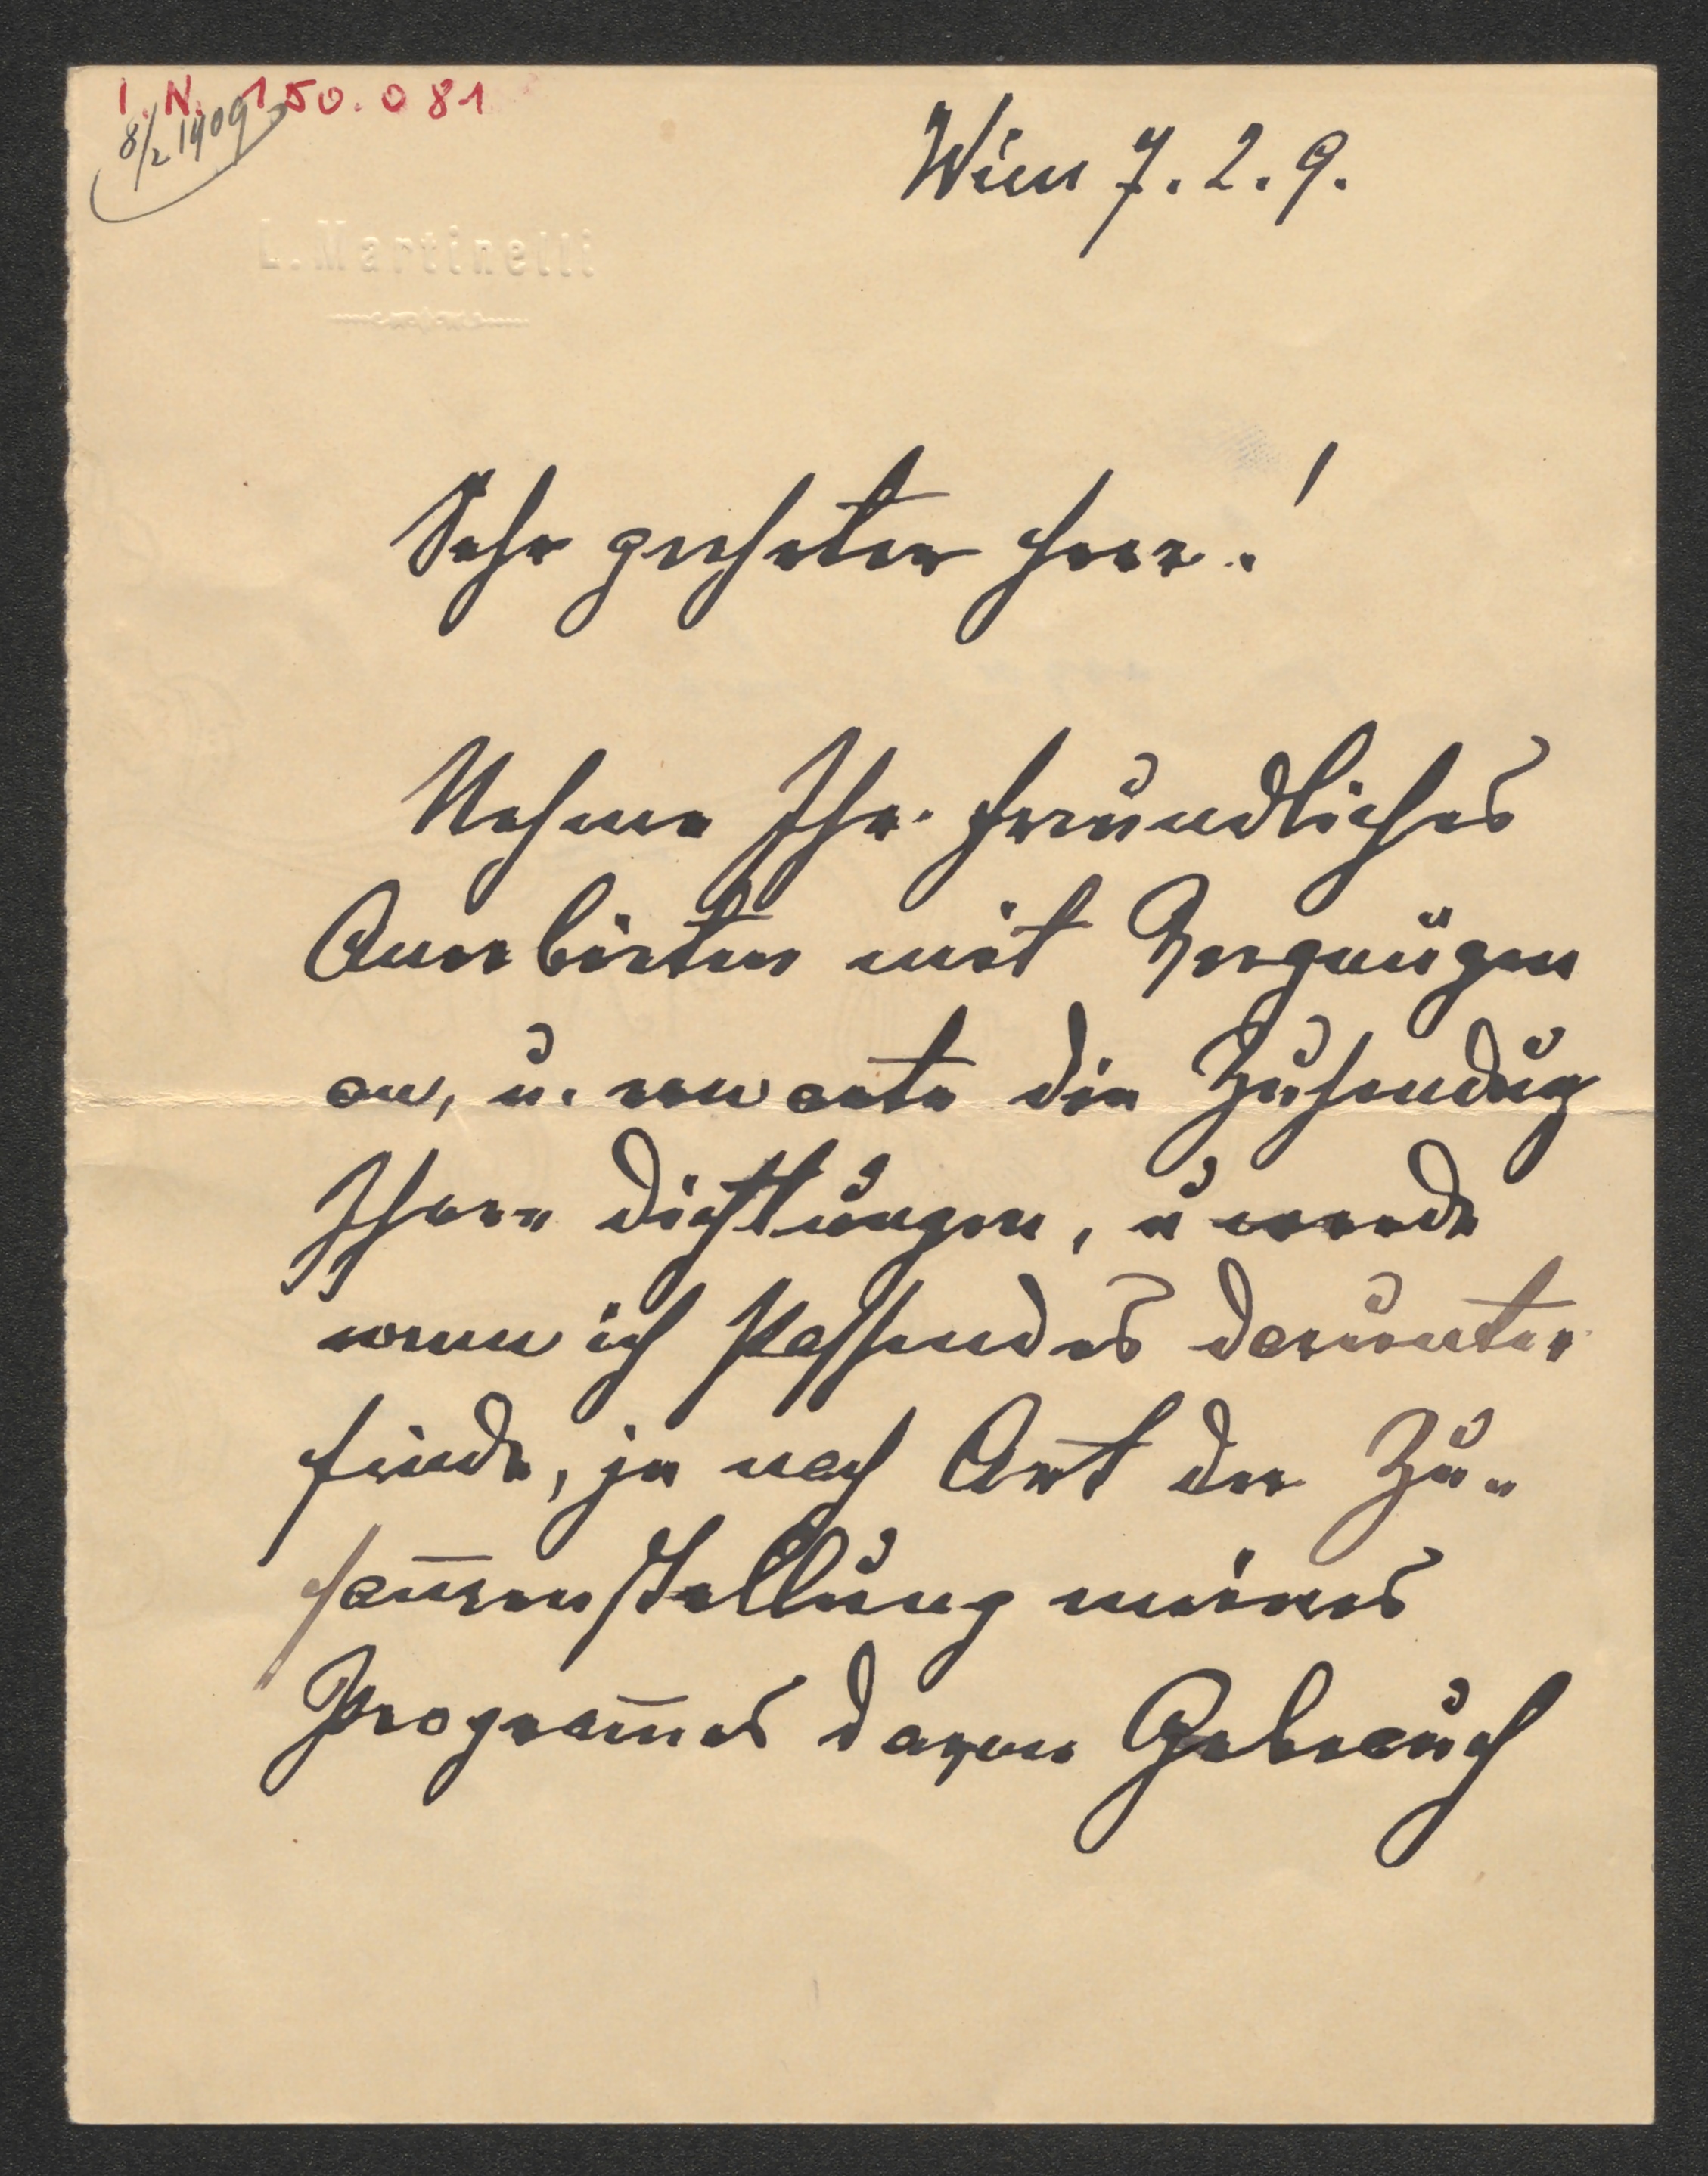 I. N. 150.081
8/2 1909
Wien 7. 2. 9.
L. Martinelli
Sehr geehrter Herr!
Nehme Ihr freundliches
Anerbieten mit Vergnügen
an, u. erwarte die Zusendung
Ihrer Dichtungen, u werde
wenn ich Passendes darunter
finde, je nach Art der Zu-
sam̅enstellung meines
Program̅es davon Gebrauch